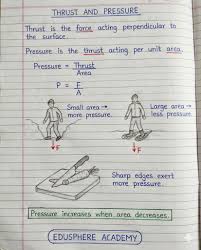 THRUST AND PRESSURE
Thrust is the force acting perpendicular to
the surface.
Pressure is the thrust acting per unit area.
Pressure = Thrust
Area
P = F
A
Small area →
more pressure.
Large area →
less pressure.
F
F
Sharp edges exert
more pressure.
Pressure increases when area decreases.
EDUSPHERE ACADEMY